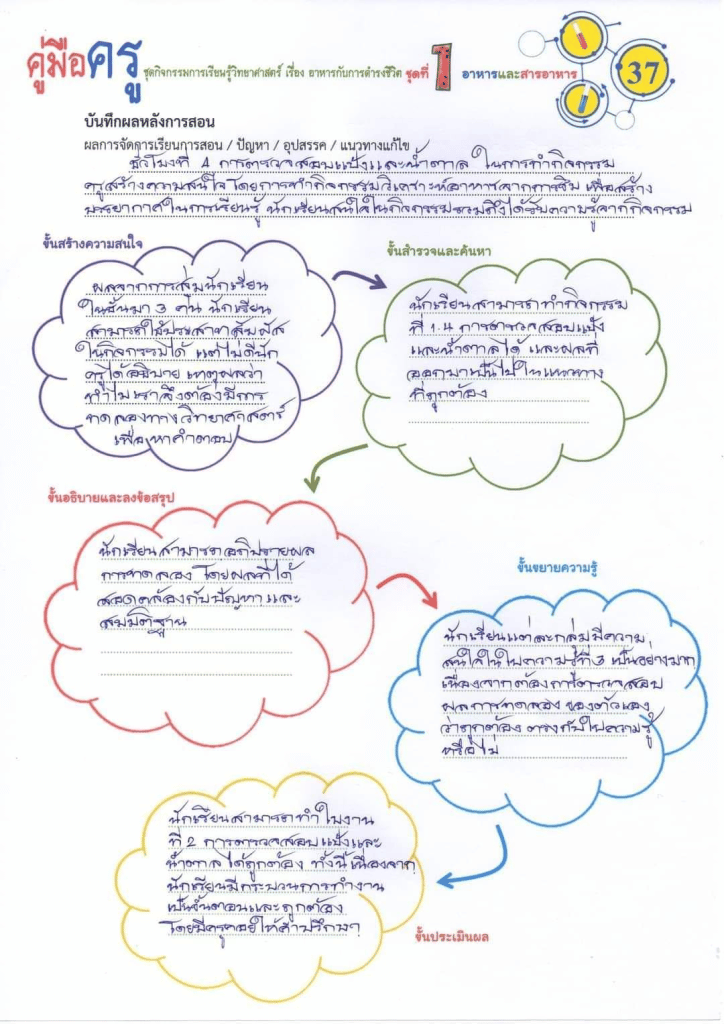 คู่มือครู ชุดกิจกรรมการเรียนรู้วิทยาศาสตร์ เรื่อง อาหารกับการดำรงชีวิต ชุดที่ 1 อาหารและสารอาหาร 37
บันทึกผลหลังการสอน
ผลการจัดการเรียนการสอน / ปัญหา / อุปสรรค / แนวทางแก้ไข
ชั่วโมงที่ 4 การตรวจสอบแป้งและน้ำตาล ในการทำกิจกรรม
ครูสร้างความสนใจโดยการทำกิจกรรมวิเคราะห์อาหารจากการชิม เพื่อสร้าง
บรรยากาศในการเรียนรู้ นักเรียนสนใจในกิจกรรมรวมถึงได้รับความรู้จากกิจกรรม
ขั้นสร้างความสนใจ
ผลจากการสุ่มนักเรียน
ในชั้นมา 3 คน นักเรียน
สามารถใช้ประสาทสัมผัส
ในกิจกรรมได้ แต่ไม่ดีนัก
ครูได้อธิบาย เหตุผลว่า
ทำไมเราจึงต้องมีการ
ทดลองทางวิทยาศาสตร์
เพื่อหาคำตอบ
ขั้นสำรวจและค้นหา
นักเรียนสามารถทำกิจกรรม
ที่ 1.4 การตรวจสอบแป้ง
และน้ำตาลได้ และผลที่
ออกมาเป็นไปในแนวทาง
ที่ถูกต้อง
ขั้นอธิบายและลงข้อสรุป
นักเรียนสามารถอภิปรายผล
การทดลอง โดยผลที่ได้
สอดคล้องกับปัญหาและ
สมมติฐาน
ขั้นขยายความรู้
นักเรียนแต่ละกลุ่มมีความ
สนใจในใบความรู้ที่ 3 เป็นอย่างมาก
เนื่องจากต้องการตรวจสอบ
ผลการทดลอง ของตัวเอง
ว่าถูกต้อง ตรงกับใบความรู้
หรือไม่
นักเรียนสามารถทำใบงาน
ที่ 2 การตรวจสอบแป้งและ
น้ำตาลได้ถูกต้อง ทั้งนี้เนื่องจาก
นักเรียนมีกระบวนการทำงาน
เป็นขั้นตอนและถูกต้อง
โดยมีครูคอยให้คำปรึกษา
ขั้นประเมินผล